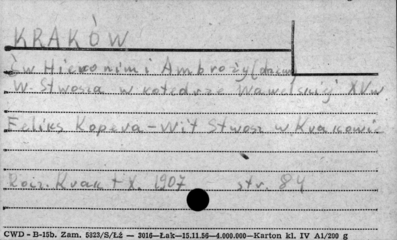 KRAKÓW
Św Hieronim i Ambroży (drzew)
W. Stwosza w katedrze Wawelskiej XVw
Feliks Kopera - Wit Stwosz w Krakowie
Rocz. Krak. t X. 1907 str. 84
CWD - B-15b. Zam. 5823/S/Łż — 3016—Łak—15.11.56—4.000.000—Karton kl. IV A1/200 g